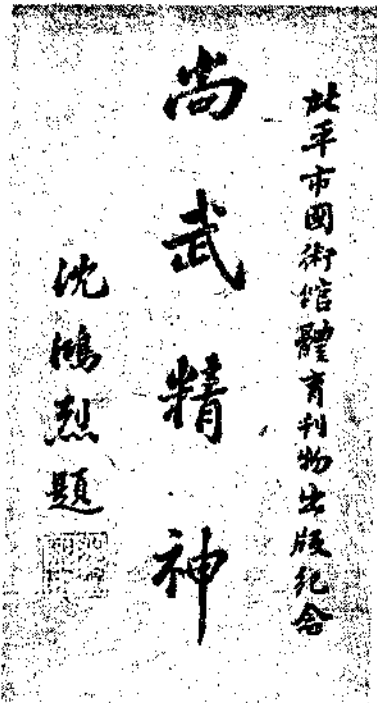 北平市國術館體育刊物出版紀念
尚武精神
沈鴻烈題